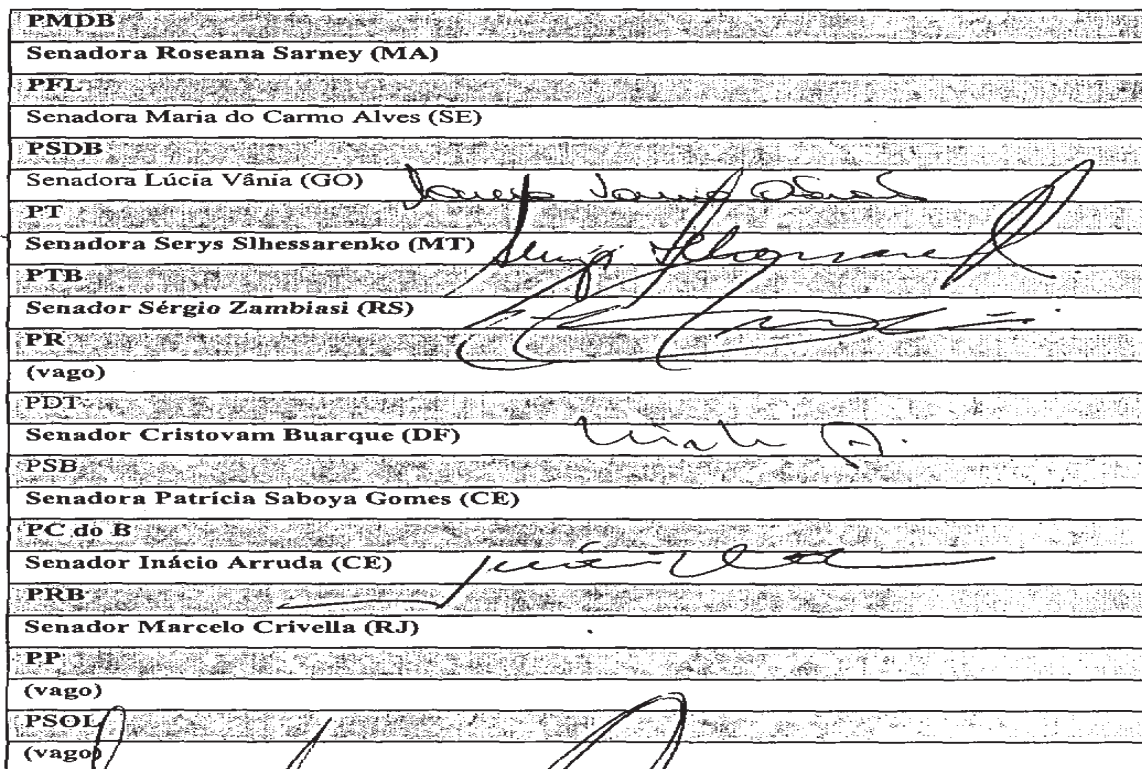 PMDB
Senadora Roseana Sarney (MA)
PFL
Senadora Maria do Carmo Alves (SE)
PSDB
Senadora Lúcia Vânia (GO)
PT
Senadora Serys Slhessarenko (MT)
PTB
Senador Sérgio Zambiasi (RS)
PR
(vago)
PDT
Senador Cristovam Buarque (DF)
PSB
Senadora Patrícia Saboya Gomes (CE)
PC do B
Senador Inácio Arruda (CE)
PRB
Senador Marcelo Crivella (RJ)
PP
(vago)
PSOL
(vago)